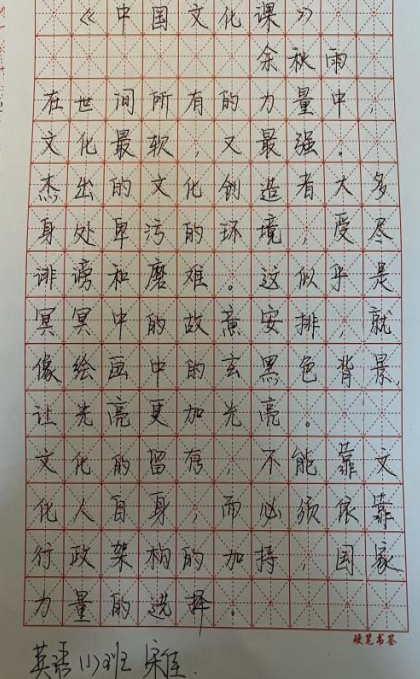 《中国文化课》
余秋雨
在世间所有的力量中，
文化最软，又最强。
杰出的文化创造者大多
身处卑污的环境，受尽
诽谤和磨难。这似乎是
冥冥中的故意安排，就
像绘画中的玄黑色背景，
让光亮更加光亮。
文化的留存，不能靠文
化人自身，而必须依靠
行政架构的加持，国家
力量的选择。
硬笔书签
英语(1)班 宋